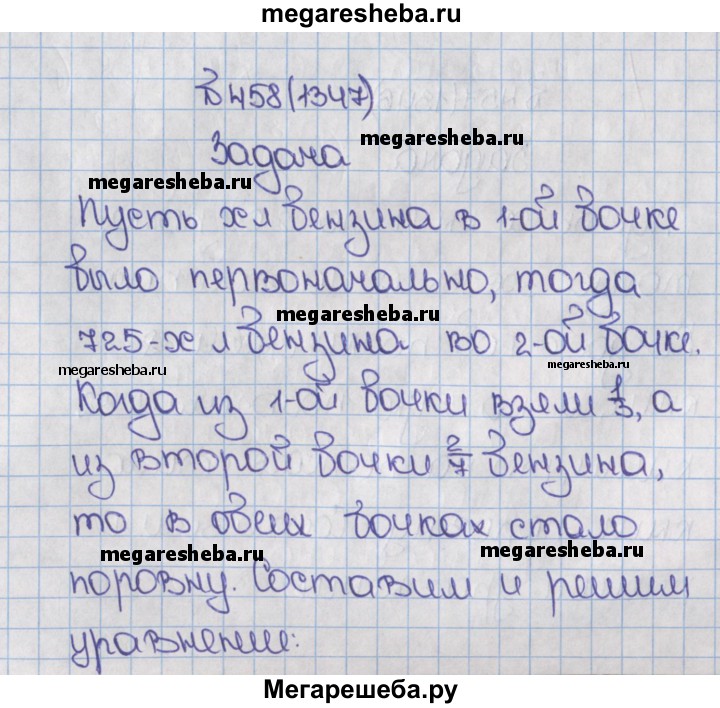 megaresheba.ru
№458(1347)
Задача
megaresheba.ru
megaresheba.ru
Пусть х л бензина в 1-ой бочке
было первоначально, тогда
megaresheba.ru
725-х л бензина во 2-ой бочке.
megaresheba.ru
megaresheba.ru
Когда из 1-ой бочки взяли 1/3, а
из второй бочки 2/7 бензина,
то в обеих бочках стало
megaresheba.ru
megaresheba.ru
поровну. Составим и решим
уравнение:
Мегарешеба.ру